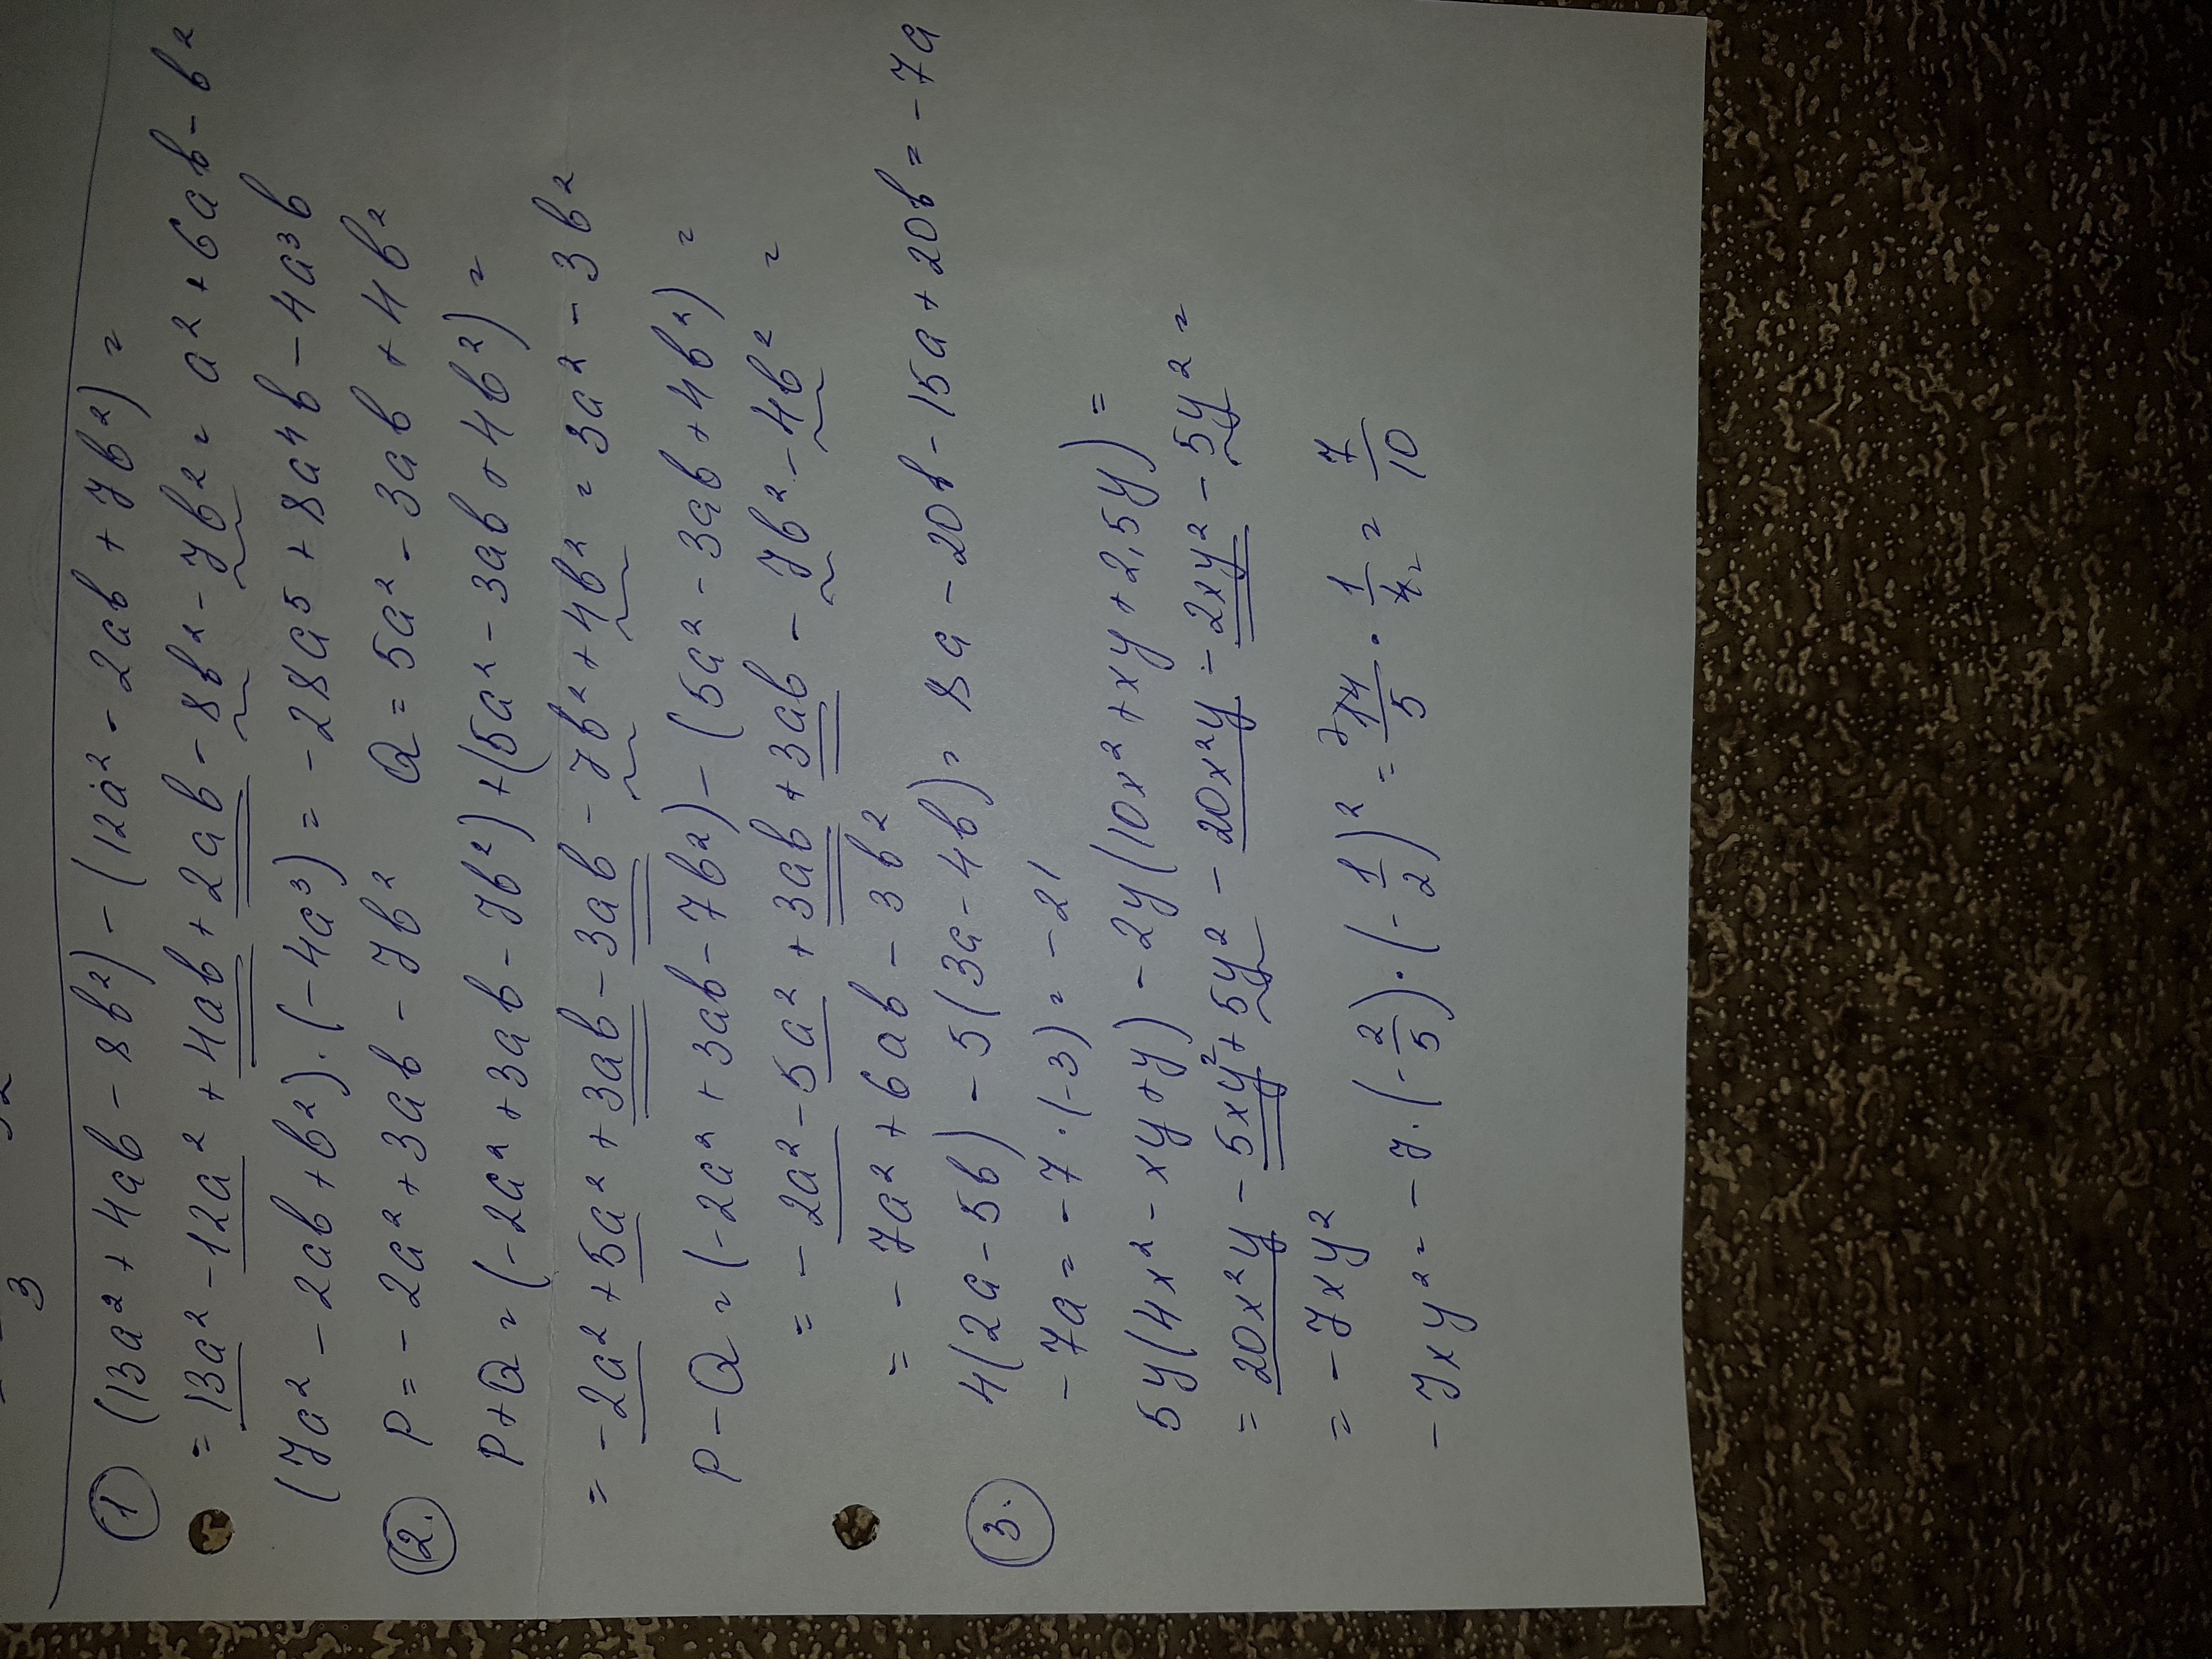 3
① (13a² + 4ab - 8b²) - (12a² - 2ab + 7b²) =
= 13a² - 12a² + 4ab + 2ab - 8b² - 7b² = a² + 6ab - b²
(7a² - 2ab + b²) · (-4a³) = -28a⁵ + 8a⁴b - 4a³b
②. P = -2a² + 3ab - 7b² Q = 5a² - 3ab + 4b²
P+Q = (-2a² + 3ab - 7b²) + (5a² - 3ab + 4b²) =
= -2a² + 5a² + 3ab - 3ab - 7b² + 4b² = 3a² - 3b²
P - Q = (-2a² + 3ab - 7b²) - (5a² - 3ab + 4b²) =
= -2a² - 5a² + 3ab + 3ab - 7b² - 4b² =
= -7a² + 6ab - 3b²
③. 4(2a - 5b) - 5(3a - 4b) = 8a - 20b - 15a + 20b = -7a
-7a = -7 · (-3) = -21
5y(4x² - xy + y) - 2y(10x² + xy + 2,5y) =
= 20x²y - 5xy² + 5y² - 20x²y - 2xy² - 5y² =
= -7xy²
-7xy² = -7 · (-2/5) · (-1/2)² = 14/5 · 1/4 = 7/10